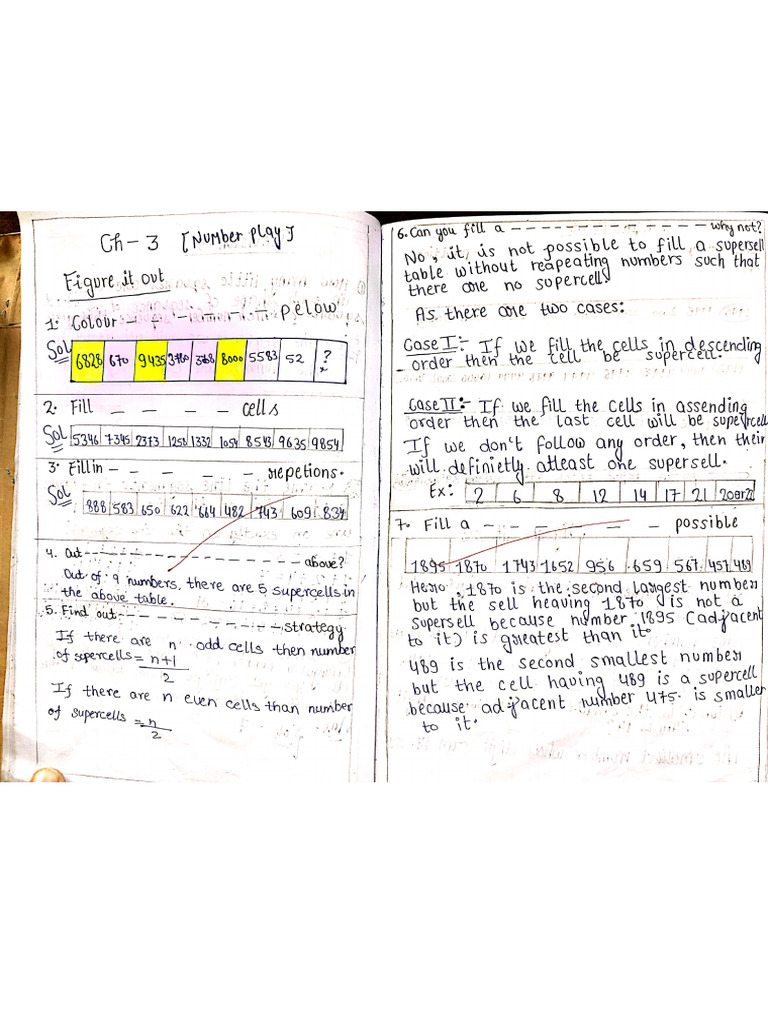 Ch-3 [Number play]
Figure it out
1. Colour - - - - - - - pelow
Sol
6828 670 9435 3780 3708 8000 5583 52 ?
2. Fill - - - - cells
Sol
5346 7345 2373 1258 1332 1054 8543 9635 9854
3. Fill in - - - - - repetions.
Sol
888 583 650 622 664 482 743 609 834
4. Out - - - - - - - - - - above?
Out of 9 numbers, there are 5 supercells in
the above table.
5. Find out - - - - - - - - - - strategy
If there are n odd cells then number
of supercells = n+1/2
If there are n even cells than number
of supercells = n/2
6. Can you fill a - - - - - - - - - - why not?
No, it is not possible to fill a supersell
table without reapeating numbers such that
there are no supercell.
As there are two cases:
Case I:- If we fill the cells in descending
order then the cell be supercell.
Case II:- If we fill the cells in assending
order then the last cell will be supercell
If we don't follow any order, then their
will definietly atleast one supersell.
Ex: 2 6 8 12 14 17 21
7. Fill a - - - - - - - possible
1895 1870 1743 1652 956 659 567 457 489
Here, 1870 is the second largest number
but the sell heaving 1870 is not a
supersell because number 1895 (adjacent
to it) is greatest than it.
489 is the second smallest number
but the cell having 489 is a supercell
because adjacent number 475 is smaller
to it.